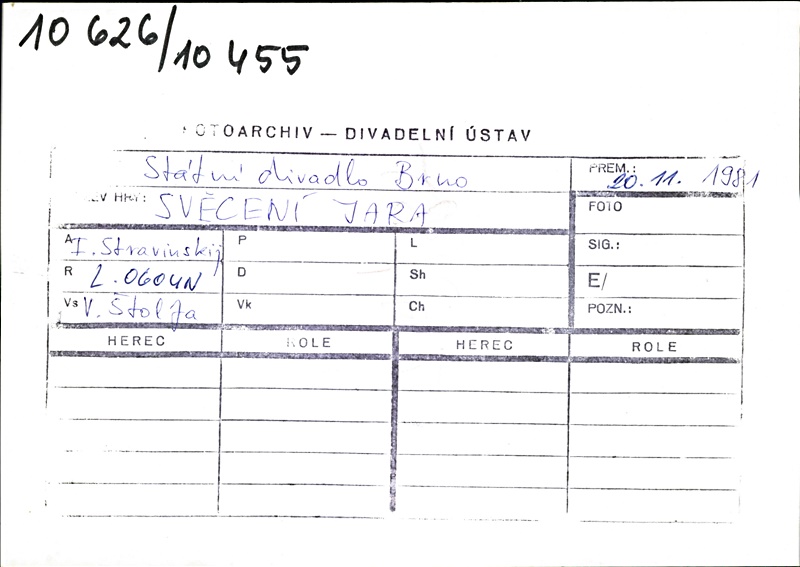 10 626/10 455
FOTOARCHIV — DIVADELNÍ ÚSTAV
Státní divadlo Brno
PREM.: 20. 11. 1981
HRY: SVĚCENÍ JARA
FOTO
A I. Stravinskij
P
L
SIG.:
R L. OGOUN
D
Sh
E/
Vs V. Štolfa
Vk
Ch
POZN.:
HEREC ROLE HEREC ROLE